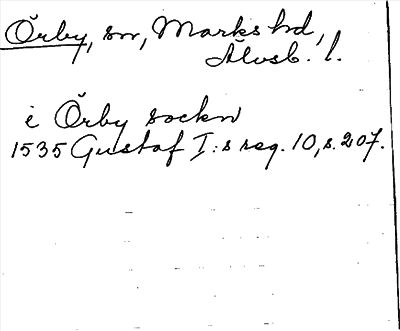 Örby, sn, Marks hd,
Älvsb. l.
i Örby sockn
1535 Gustaf I:s reg. 10, s. 207.